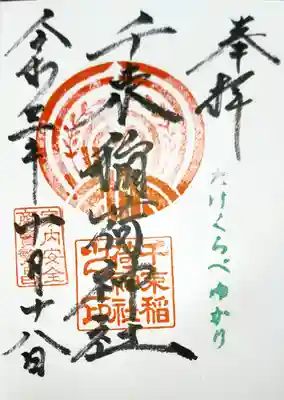 奉拝
たけくらべゆかり
千束稲荷神社
千束稲荷神社之印
家内安全
商売繁昌
令和三年十月十八日